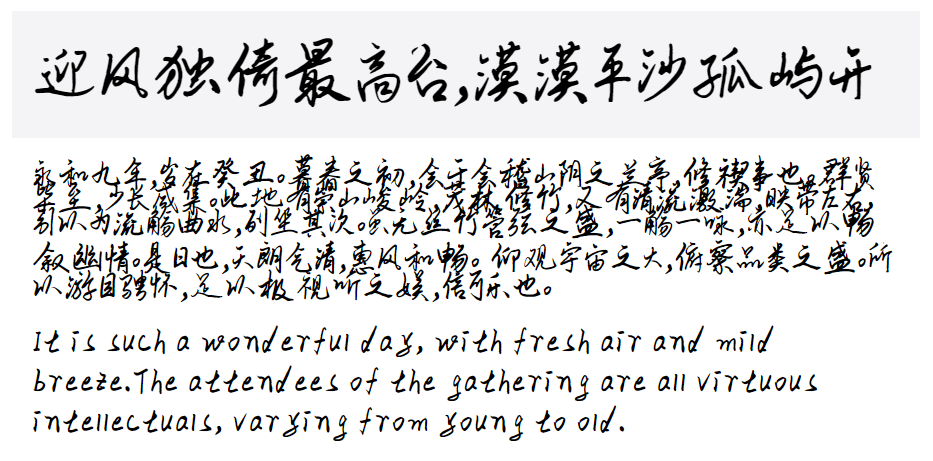 迎风独倚最高台,漠漠平沙孤屿开
永和九年,岁在癸丑。暮春之初,会于会稽山阴之兰亭,修禊事也。群贤
毕至,少长咸集。此地有崇山峻岭,茂林修竹,又有清流激湍,映带左右,
引以为流觞曲水,列坐其次。虽无丝竹管弦之盛,一觞一咏,亦足以畅
叙幽情。是日也,天朗气清,惠风和畅。仰观宇宙之大,俯察品类之盛。所
以游目骋怀,足以极视听之娱,信可乐也。
It is such a wonderful day, with fresh air and mild
breeze.The attendees of the gathering are all virtuous
intellectuals, varying from young to old.